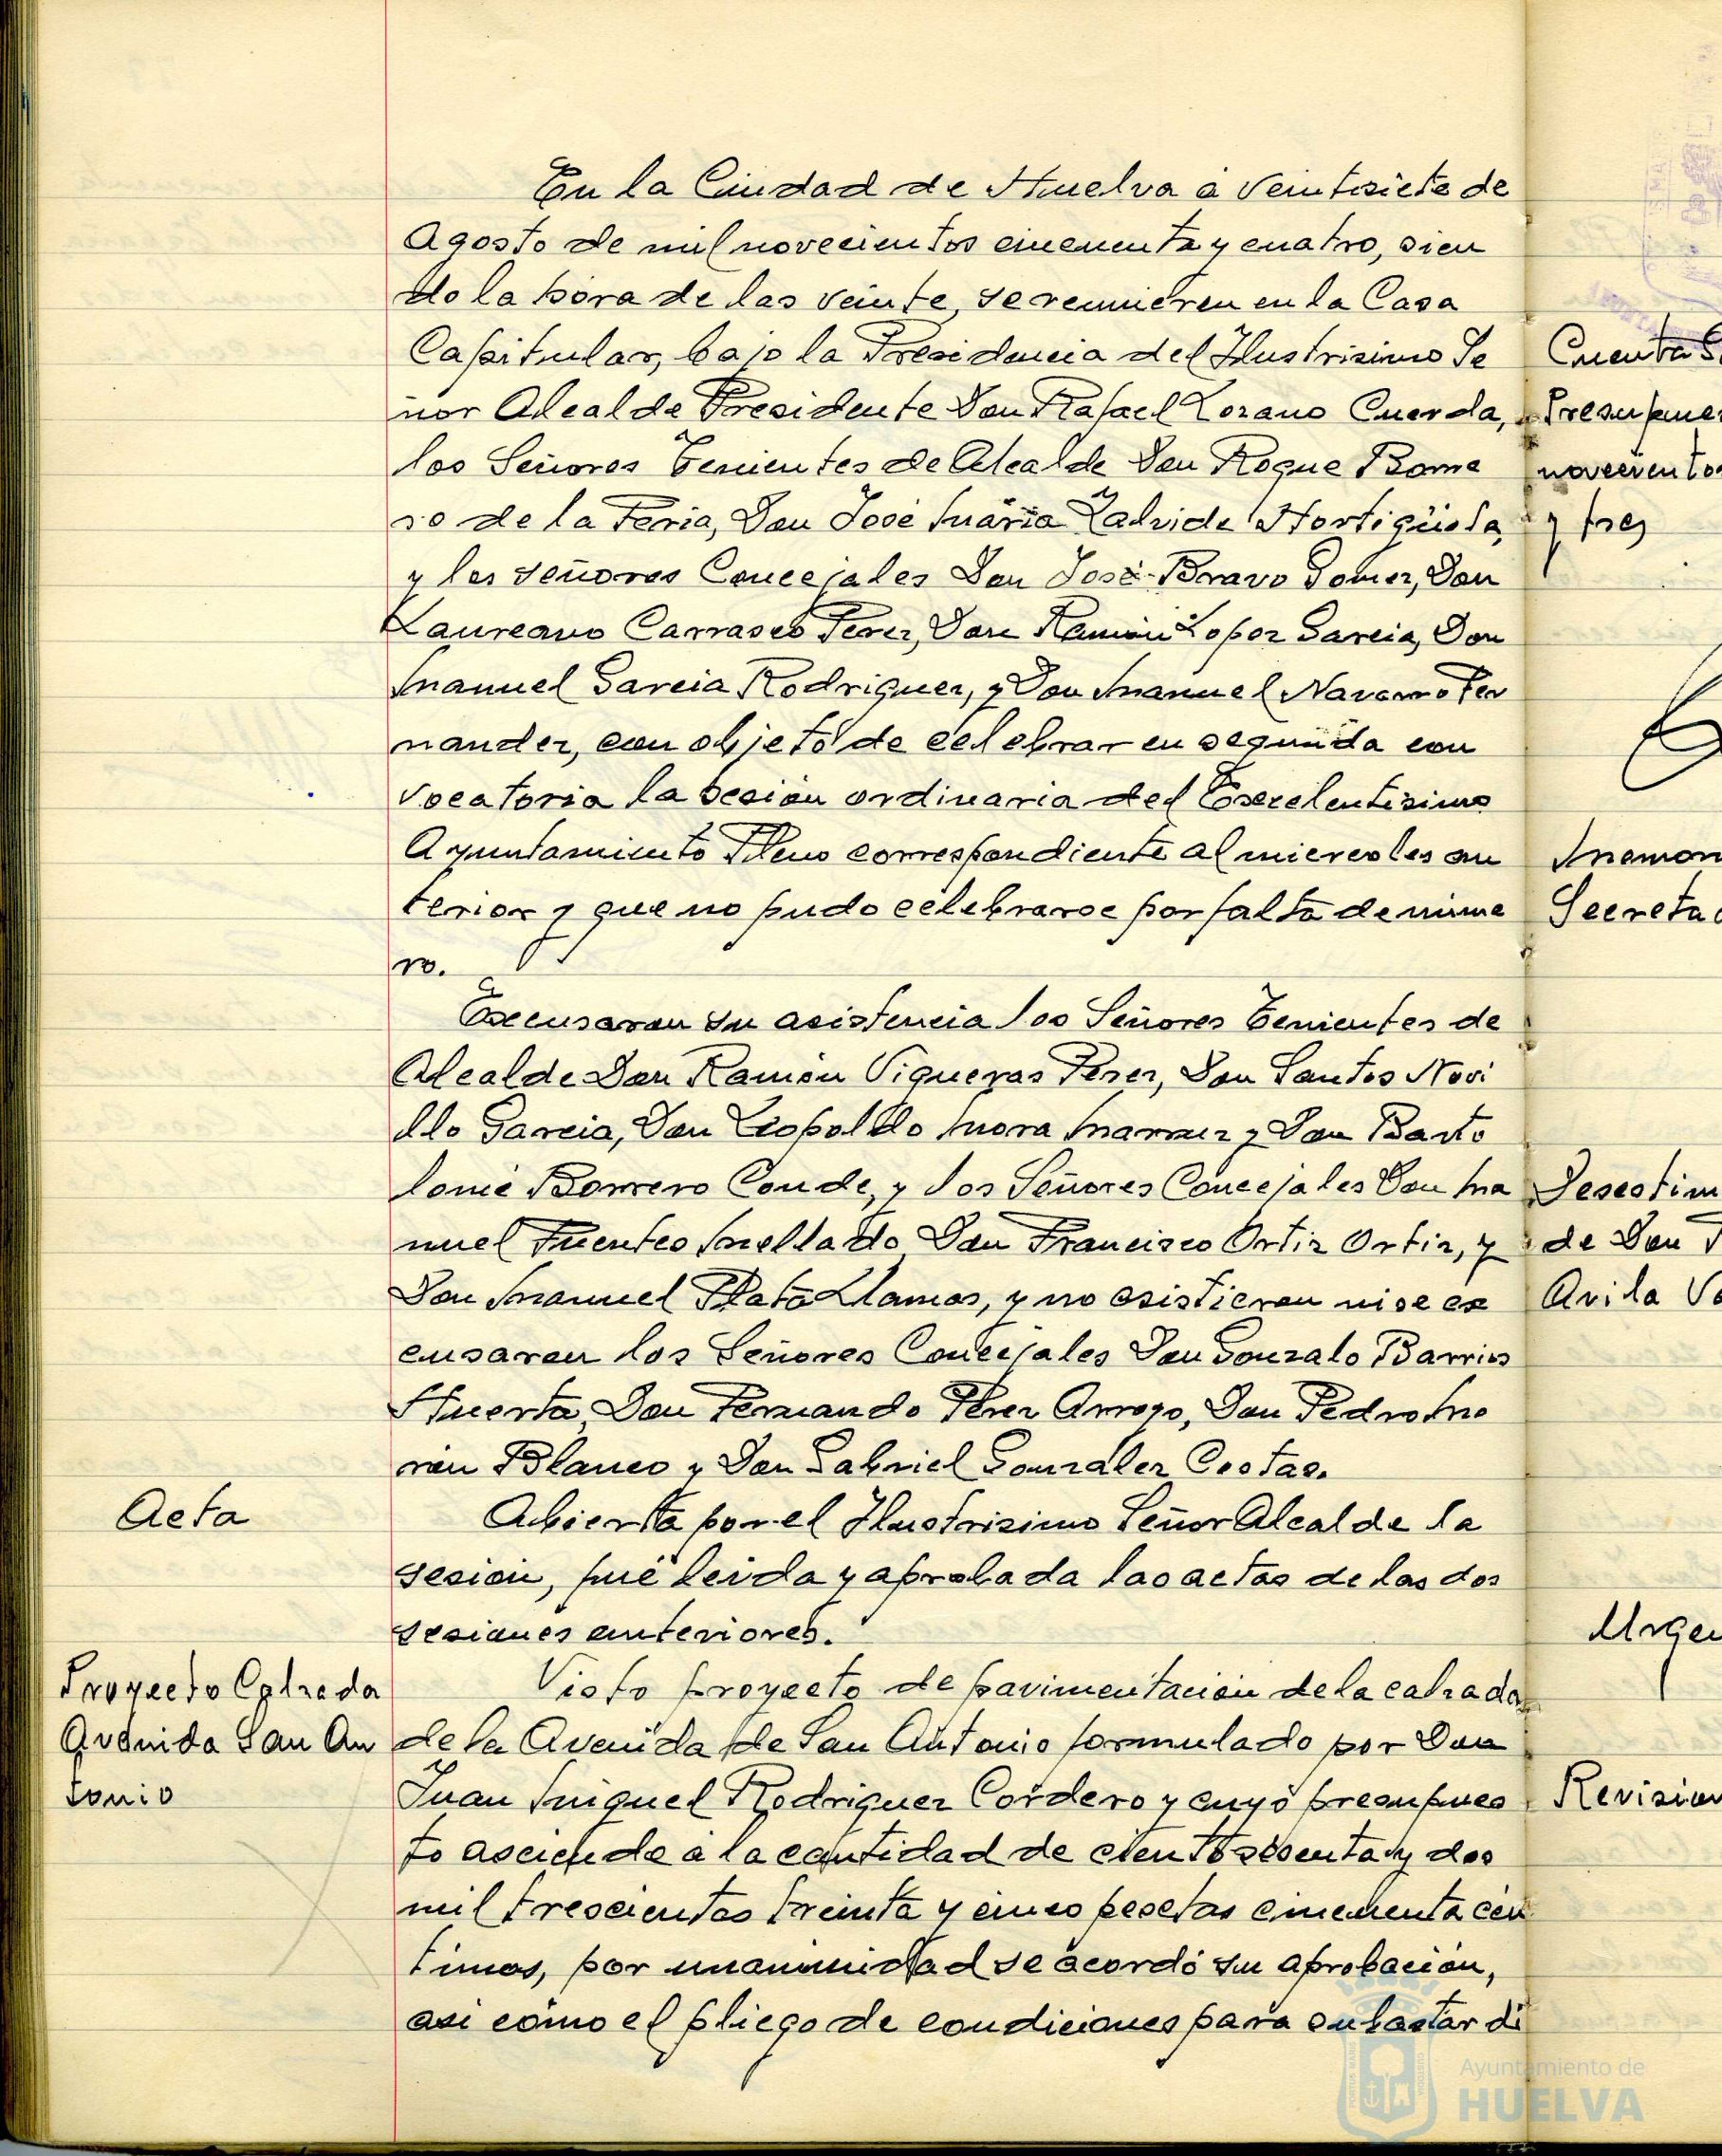 En la Ciudad de Huelva a veintisiete de
Agosto de mil novecientos cincuenta y cuatro, sien
do la hora de las veinte, se reunieron en la Casa
Capitular, bajo la Presidencia del Ilustrisimo Se
ñor Alcalde Presidente Don Rafael Lozano Cuerda,
los Señores Tenientes de Alcalde Don Roque Rome
ro de la Feria, Don José María Zalvide Hortigüela,
y los señores Concejales Don José Bravo Gomez, Don
Laureano Carrasco Perez, Don Ramón Lopez Garcia, Don
Manuel Garcia Rodriguez, y Don Manuel Navarro Fer
nandez, con objeto de celebrar en segunda con
vocatoria la sesión ordinaria del Excelentisimo
Ayuntamiento Pleno correspondiente al miercoles an
terior y que no pudo celebrarse por falta de nume
ro.
Excusaron su asistencia los Señores Tenientes de
Alcalde Don Ramón Vigueras Perez, Don Santos Novi
llo Garcia, Don Leopoldo Mora y Don Barto
lomé Borrero Conde, y los Señores Concejales Don Ma
nuel Fuentes Mellado Don Francisco Ortiz Ortiz, y
Don Manuel Plata Llamas, y no asistieron ni se ex
cusaron los Señores Concejales Don Gonzalo Barrios
Huerta, Don Fernando Perez Arroyo, Don Pedro Mo
ron Blanco y Don Gabriel Gonzalez Costas.
Acta
Abierta por el Ilustrisimo Señor Alcalde la
sesión, fué leida y aprobada las actas de las dos
sesiones anteriores.
Proyecto Calzada
Avenida San An
tonio
Visto proyecto de pavimentación de la calzada
de la Avenida de San Antonio formulado por Don
Juan Miguel Rodriguez Cordero y cuyo presupues
to asciende a la cantidad de ciento sesenta y dos
mil trescientas treinta y cinco pesetas cincuenta cén
timos, por unanimidad se acordó su aprobación,
asi como el pliego de condiciones para subastar di
Cuenta
Presupues
novecientos
y tres
Memor
Secreta
Desestim
de Don
Avila
Urgen
Revision
Ayuntamiento de
HUELVA